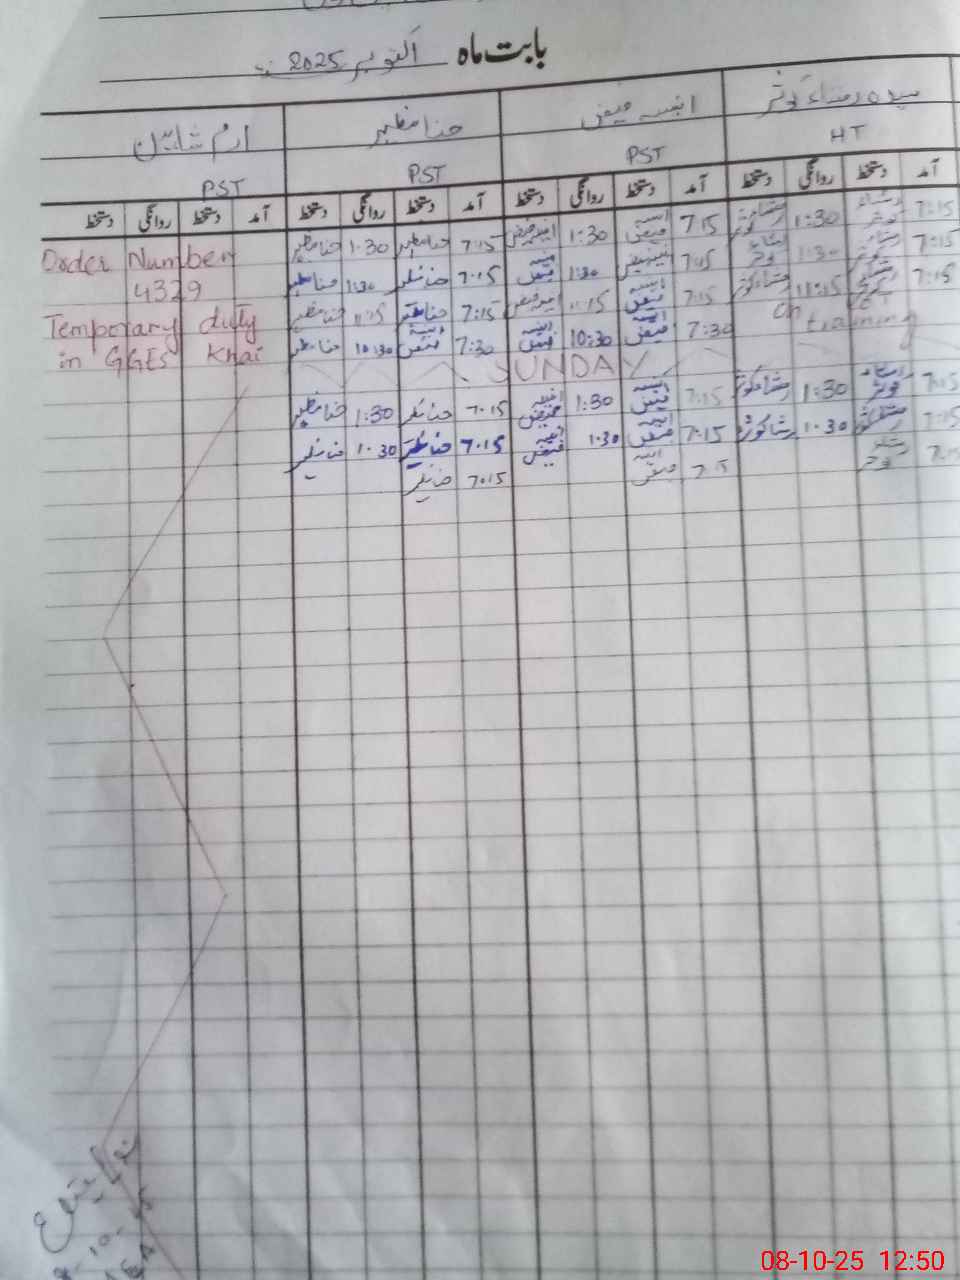 بابت ماہ اکتوبر 2025ء
سیدہ رمشاء کوثر انیسہ فیض حنا مظہر ارم شاہین
HT PST PST PST
آمد دستخط روانگی دستخط آمد دستخط روانگی دستخط آمد دستخط روانگی دستخط آمد دستخط روانگی دستخط
7:15 رمشاء کوثر 1:30 رمشاء کوثر 7:15 انیسہ فیض 1:30 انیسہ فیض 7:15 حنا مظہر 1:30 حنا مظہر
Order Number
7:15 رمشاء کوثر 1:30 رمشاء کوثر 7:15 انیسہ فیض 1:30 انیسہ فیض 7:15 حنا مظہر 1:30 حنا مظہر
4329
7:15 رمشاء کوثر 11:15 رمشاء کوثر 7:15 انیسہ فیض 11:15 انیسہ فیض 7:15 حنا مظہر 11:15 حنا مظہر
Temporary duty
on training
7:30 انیسہ فیض 10:30 انیسہ فیض 7:30 10:30 حنا مظہر
in GGES Khai
SUNDAY
7:15 رمشاء کوثر 1:30 رمشاء کوثر 7:15 انیسہ فیض 1:30 انیسہ فیض 7:15 حنا مظہر 1:30 حنا مظہر
7:15 رمشاء کوثر 1:30 رمشاء کوثر 7:15 انیسہ فیض 1:30 انیسہ فیض 7:15 حنا مظہر 1:30 حنا مظہر
7:15 رمشاء کوثر 7:15 انیسہ فیض 7:15 حنا مظہر
08-10-25 12:50